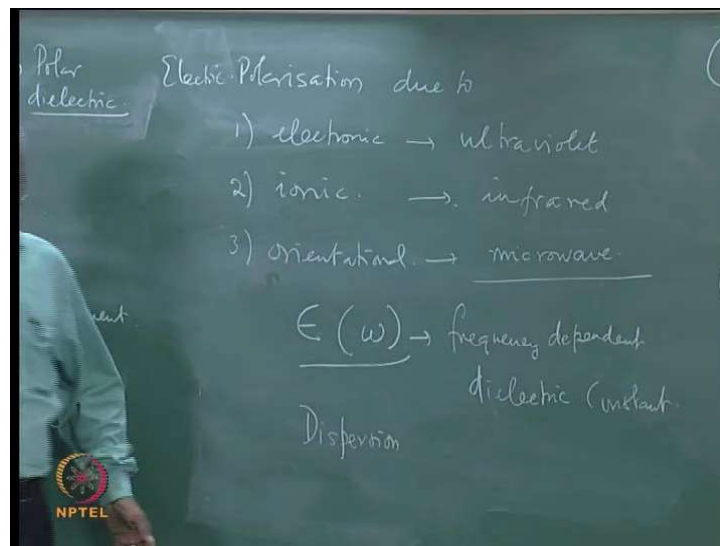 Polar
dielectric.
Electric Polarisation due to
1) electronic → ultraviolet
2) ionic. → infrared
3) orientational. → microwave.
ϵ(ω) → frequency dependent
dielectric Constant.
Dispersion
NPTEL